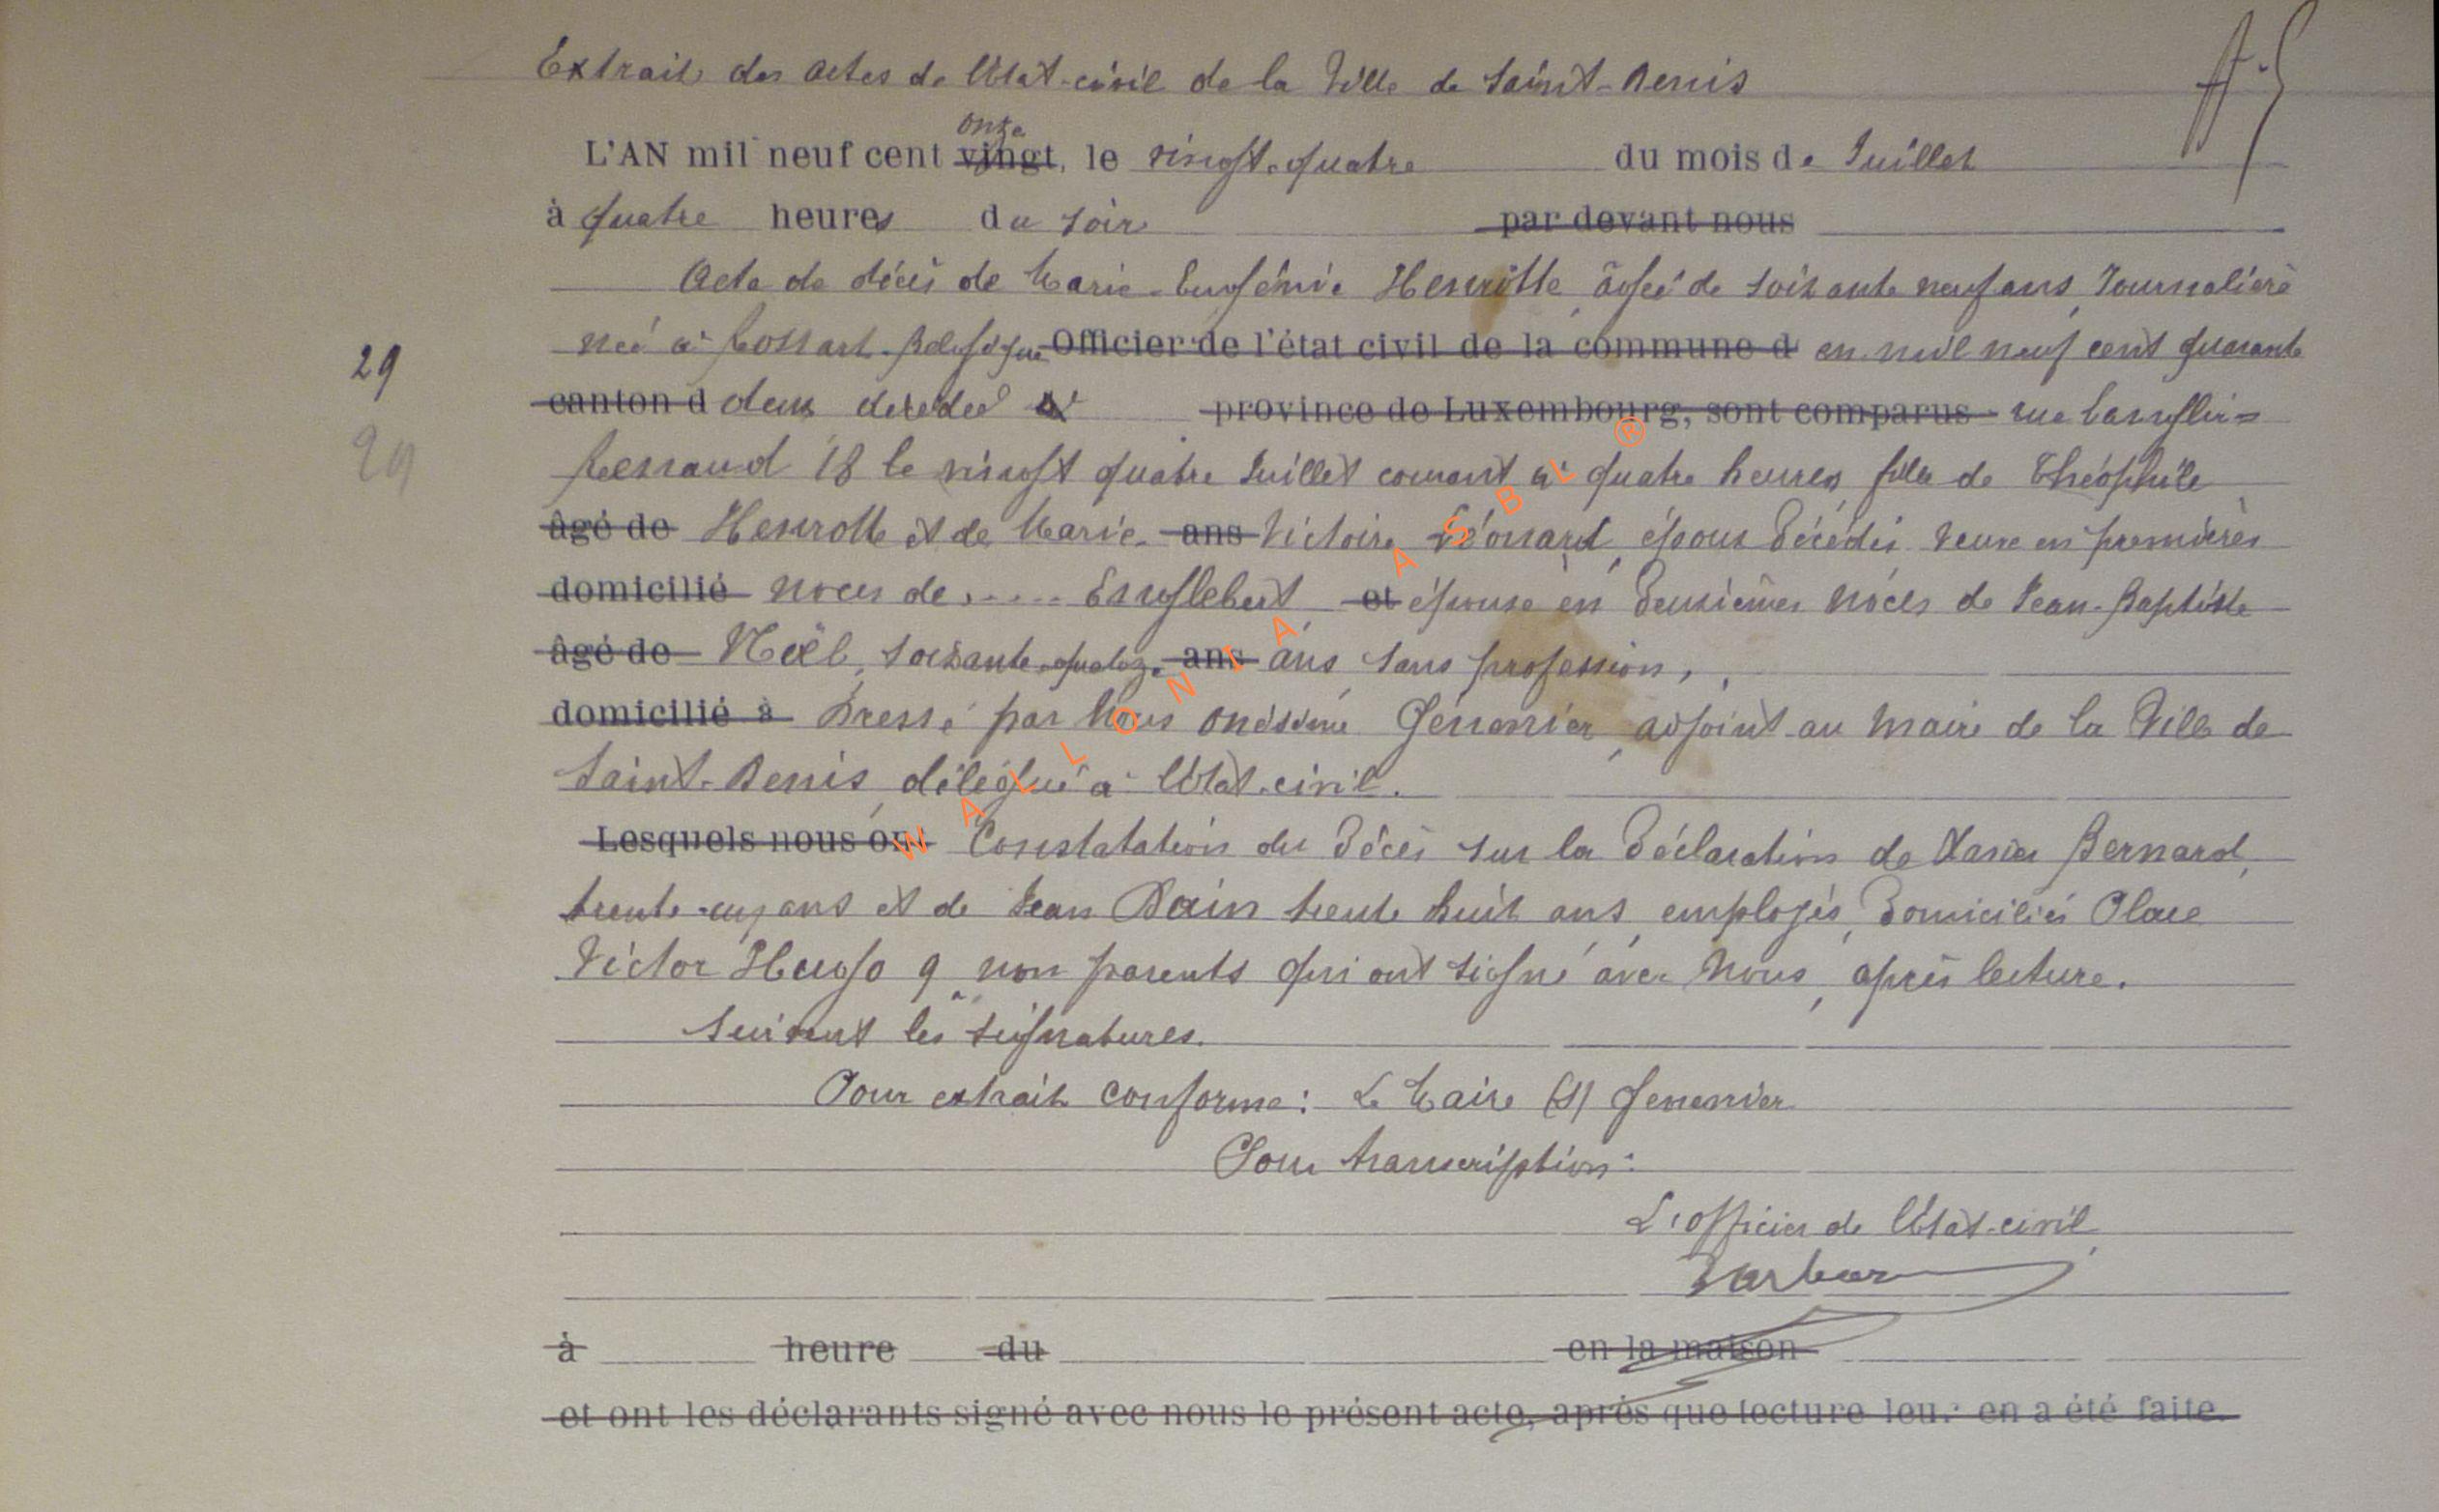 Extrait des actes de l'état-civil de la Ville de Saint-Denis
L'AN mil neuf cent vingt onze, le vingt-quatre du mois de Juillet
à quatre heures du soir par devant nous
Acte de décès de Marie-Eugénie Henrotte, âgée de soixante neuf ans, Journalière
née à Belgique Officier de l'état civil de la commune d en mil neuf cent quarante
29
canton d deux décédée à province de Luxembourg, sont comparus rue
29
18 le vingt quatre Juillet courant à quatre heures, fille de Théophile
âgé de Henrotte et de Marie- ans Victoire Léonard, époux décédés, veuve en premières
domicilié noces de ..... Englebert et épouse en deuxièmes noces de Jean-Baptiste
âgé de Noël, soixante-quatoze ans ans sans profession,
domicilié à Dressé par Nous Onésime Genevrier, adjoint au Maire de la Ville de
Saint-Denis, délégué à l'état-civil.
Lesquels nous ont Constatation du décès sur la déclaration de Xavier Bernard,
trente-cinq ans et de Jean Bain trente huit ans, employés, domiciliés Place
Victor Hugo 9, non parents qui ont signé avec Nous, après lecture.
Suivent les signatures.
Pour extrait conforme: Le Maire (s) Genevrier
Pour transcription:
L'officier de l'état-civil,
à heure du en la maison
et ont les déclarants signé avec nous le présent acte, après que lecture leur en a été faite.
WALLONIA ASBL ®